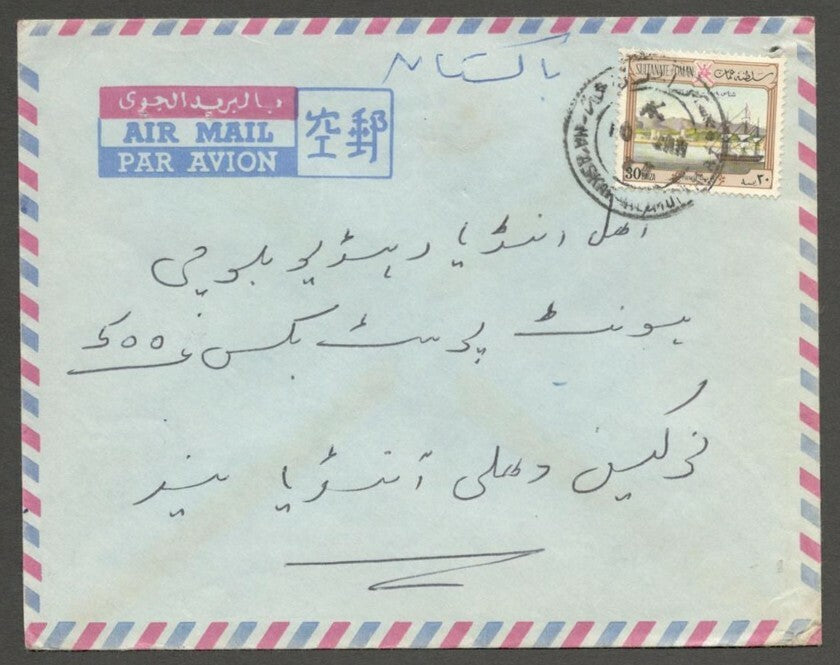 پاکستان
بالبريد الجوى
AIR MAIL
PAR AVION
空郵
SULTANATE OF OMAN
سلطنة عمان
30
٣٠
10 JAN
اهل انڈیا ریڈیو بلوچی
یونٹ پوسٹ بکس ۵۰۰
دھلی انڈیا ہند